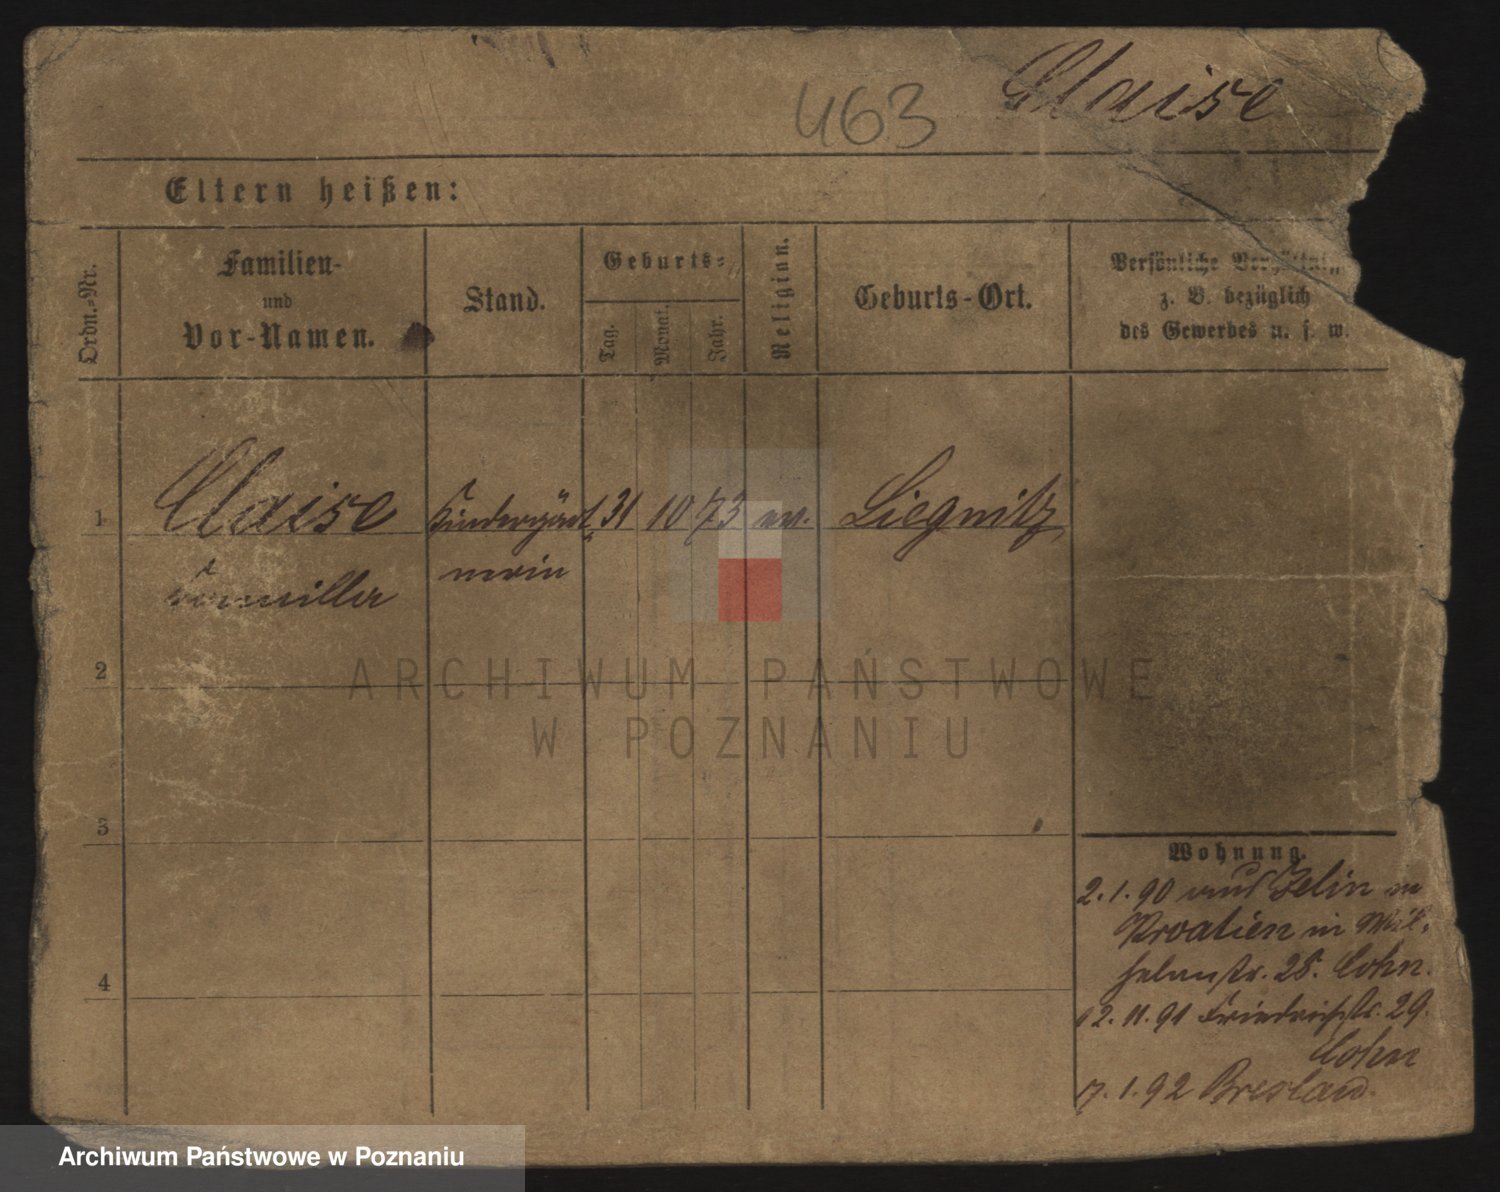 463
Claise
Eltern heißen:
Ordn.-Nr.
Familien-
und
Vor-Namen.
Stand.
Geburts-
Tag.
Monat.
Jahr.
Religion.
Geburts-Ort.
Persönliche
z. B. bezüglich
des Gewerbes u. s. w.
1
Claise
Kindergärt
31
10
73
ev.
Liegnitz
nerin
2
3
4
Wohnung.
2.1.90 aus in
Kroatien in Wil-
helmstr. 28. Cohn.
12.11.91 Friedrichstr. 29.
Cohn
7.1.92 Breslau.
ARCHIWUM PAŃSTWOWE
W POZNANIU
Archiwum Państwowe w Poznaniu